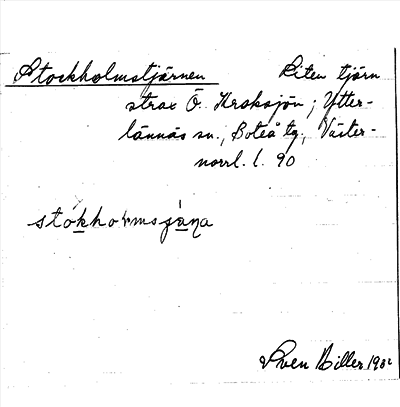 Stockholmstjärnen Liten tjärn
strax Ö. Kroksjön; Ytter-
lännäs sn., Boteå tg., Väster-
norrl. l. 90
Sven Biller